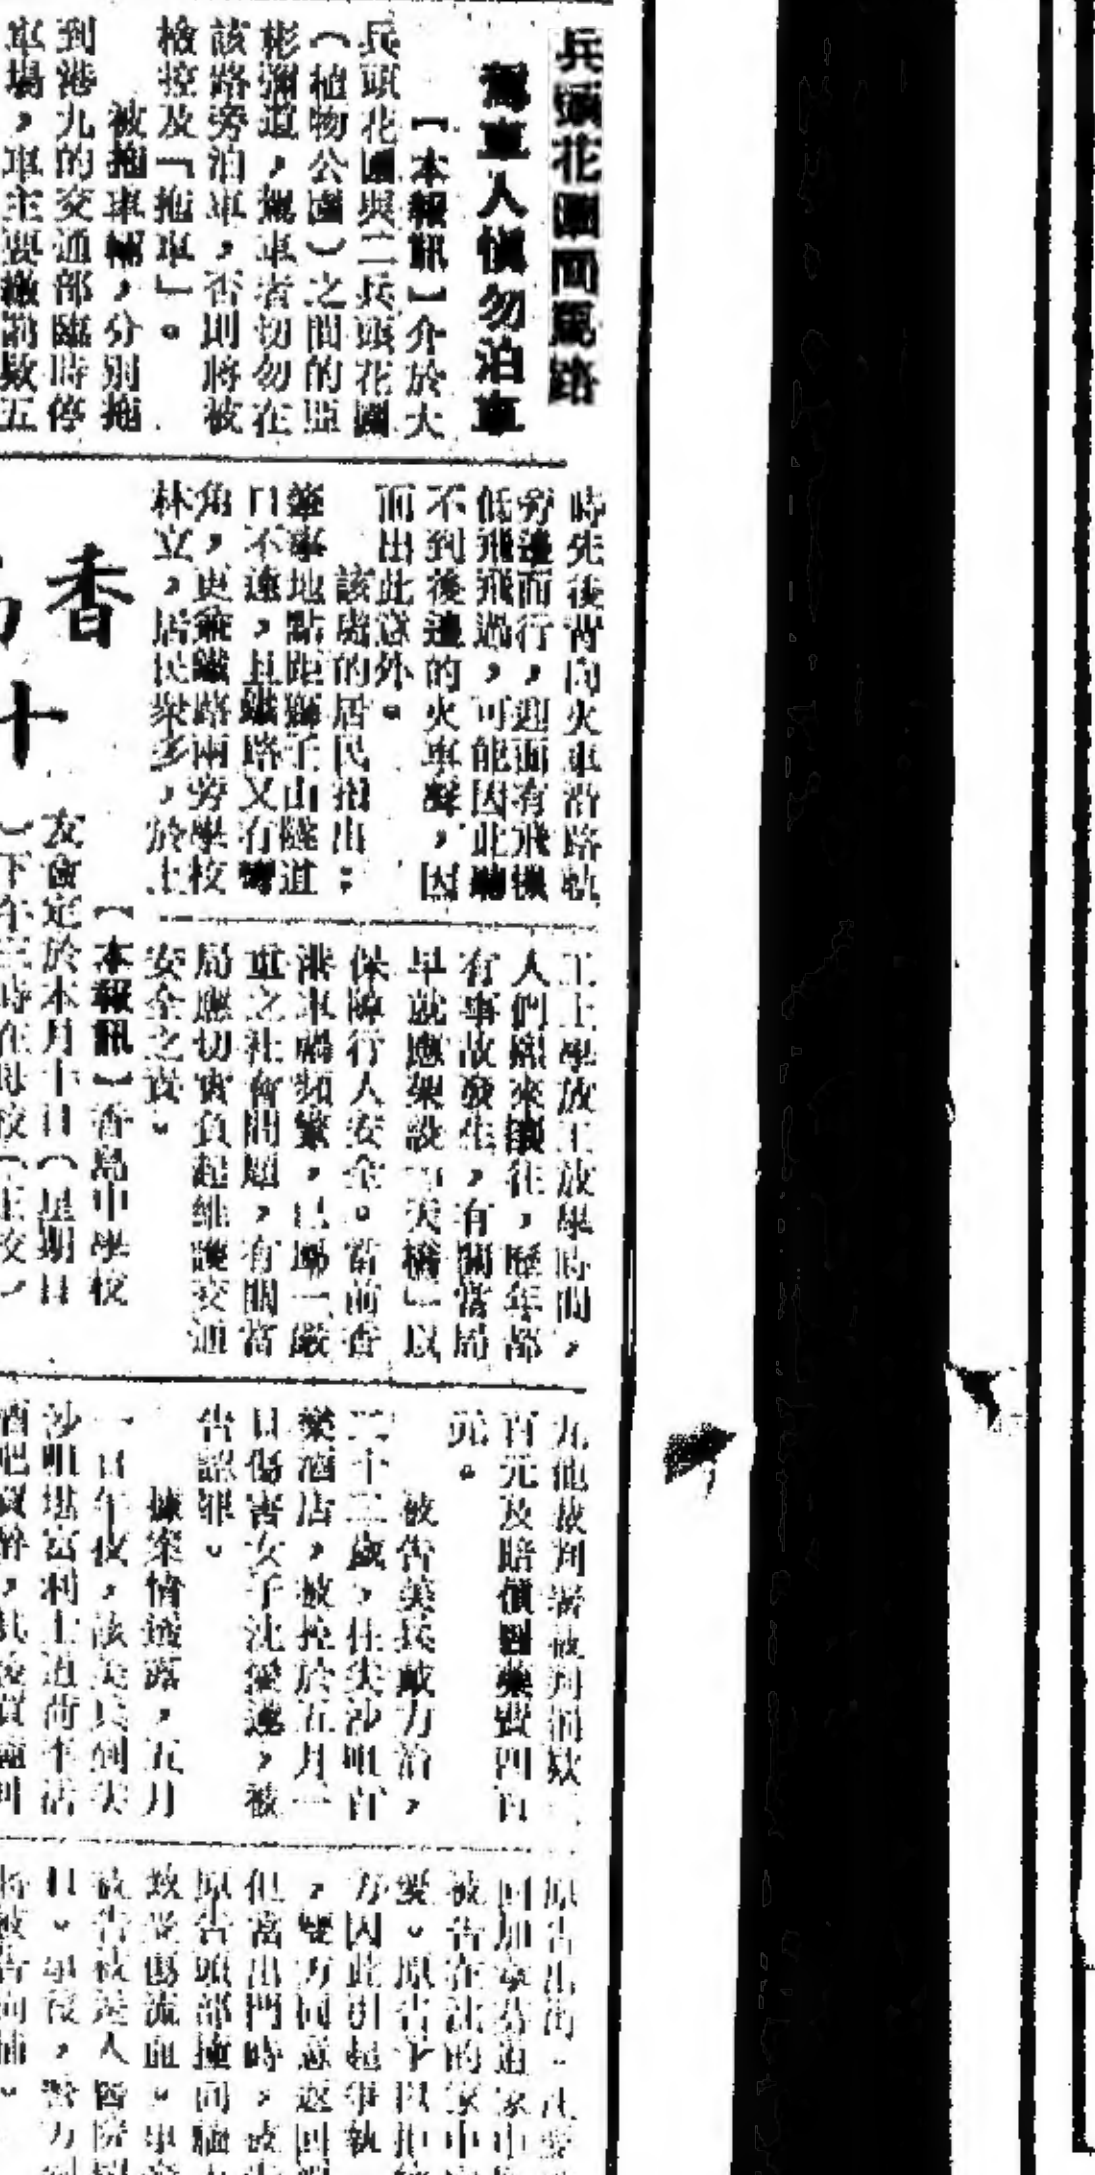 兵頭花園間馬路
駕車人慎勿泊車
【本報訊】介於大
兵頭花園與二兵頭花園
（植物公園）之間的亞
彬彌道，駕車者切勿在
該路旁泊車，否則將被
檢控及「拖車」。
被拖車輛，分別拖
到港九的交通部臨時停
車場，車主要繳罰款五
時先後背向火車沿路軌
旁邊而行，迎面有飛機
低飛飛過，可能因此聽
不到後邊的火車聲，因
而出此意外。
該處的居民指出：
肇事地點距獅子山隧道
口不遠，且鐵路又有彎
角，更兼鐵路兩旁學校
林立，居民衆多，於上
工上學放工放學時間，
人們熙來攘往，歷年都
有事故發生，有關當局
早就應架設「天橋」以
保障行人安全。當前香
港車禍頻繁，已屬一嚴
重之社會問題，有關當
局應切實負起維護交通
安全之責。
香
十
【本報訊】香島中學校
友會定於本月十日（星期日
）下午三時在母校（正校）
百元及賠償醫藥費四百
元。
被告美兵
二十三歲，住尖沙咀百
樂酒店，被控於五月一
日傷害女子沈愛蓮，被
告認罪。
據案情透露，五月
一日午夜，該美兵到尖
沙咀堪富利士道荷李活
酒吧買醉，其後買鐘
原告出街，
回加拿芬道家中，
被告在沈的家中
愛。原告
方因此引起爭執
，雙方同意返回
但當出門時，
原告頭部撞向牆
致受傷流血。事
被告被送入醫院
日。事後，警方
將被告拘捕。